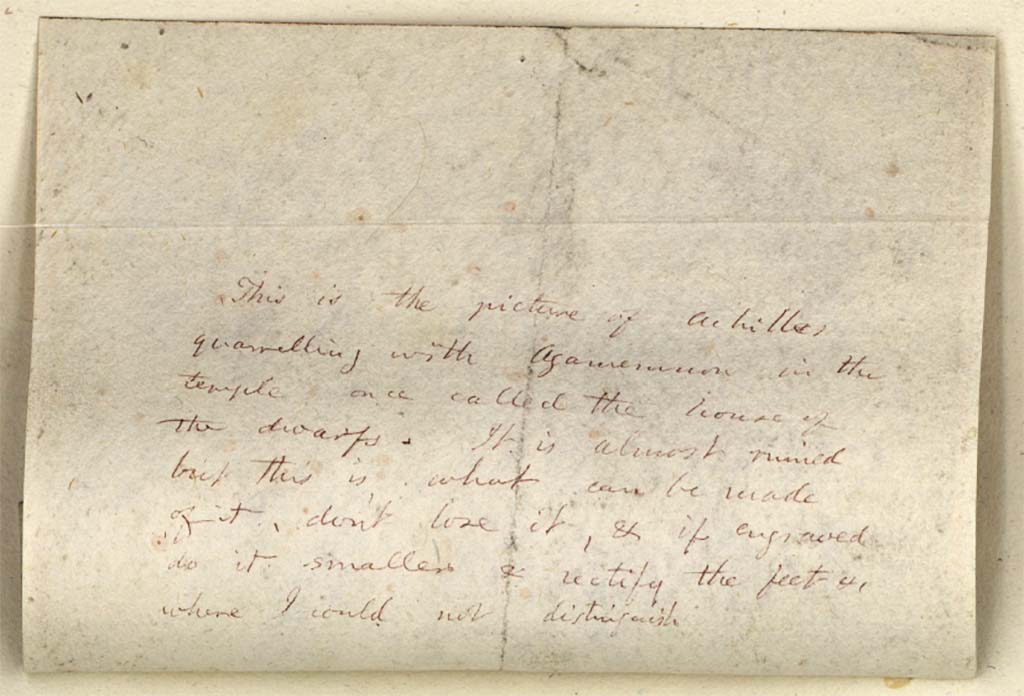 This is the picture of Achilles
quarrelling with Agamemnon in the
temple once called the house of
the dwarfs. It is almost ruined
but this is what can be made
of it, don't lose it, & if engraved
do it smaller & rectify the feet &c
where I could not distinguish